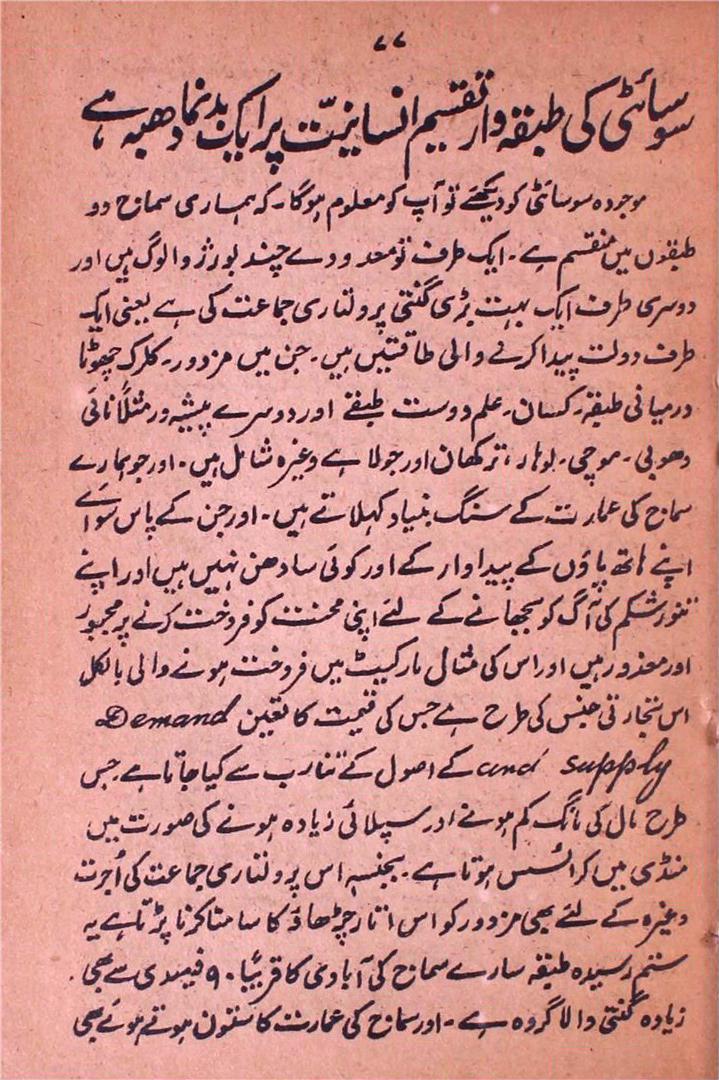 ۷۷
سوسائٹی کی طبقہ وار تقسیم انسانیت پر ایک بدنما دھبہ ہے
موجودہ سوسائٹی کو دیکھئے تو آپ کو معلوم ہوگا۔ کہ ہماری سماج دو
طبقوں میں منقسم ہے۔ ایک طرف تو معدودے چند بورژوا لوگ ہیں اور
دوسری طرف ایک بہت بڑی گنتی پرولتاری جماعت کی ہے یعنی ایک
طرف دولت پیدا کرنے والی طاقتیں ہیں۔ جن میں مزدور۔ کلرک چھوٹا
درمیانی طبقہ۔ کسان۔ علم دوست طبقے اور دوسرے پیشہ ور مثلاً نائی
دھوبی۔ موچی۔ لوہار، ترکھان اور جولاہے وغیرہ شامل ہیں۔ اور جو ہمارے
سماج کی عمارت کے سنگ بنیاد کہلاتے ہیں۔ اور جن کے پاس سوائے
اپنے ہاتھ پاؤں کے پیداوار کے اور کوئی سادھن نہیں ہیں اور اپنے
تنور شکم کی آگ کو سجھانے کے لئے اپنی محنت کو فروخت کرنے پر مجبور
اور معذور ہیں اور اس کی مثال مارکیٹ میں فروخت ہونے والی بالکل
اس تجارتی جنس کی طرح ہے جس کی قیمت کا تعین Demand
and supply کے اصول کے تناسب سے کیا جاتا ہے۔ جس
طرح مال کی مانگ کم ہونے اور سپلائی زیادہ ہونے کی صورت میں
منڈی میں کرائسس ہوتا ہے۔ بجنسہٖ اس پرولتاری جماعت کی اُجرت
وغیرہ کے لئے بھی مزدور کو اس اتار چڑھاؤ کا سامنا کرنا پڑتا ہے یہ
ستم رسیدہ طبقہ سارے سماج کی آبادی کا قریباً ۹۰ فیصدی سے بھی
زیادہ گنتی والا گروہ ہے۔ اور سماج کی عمارت کا ستون ہوتے ہوئے بھی